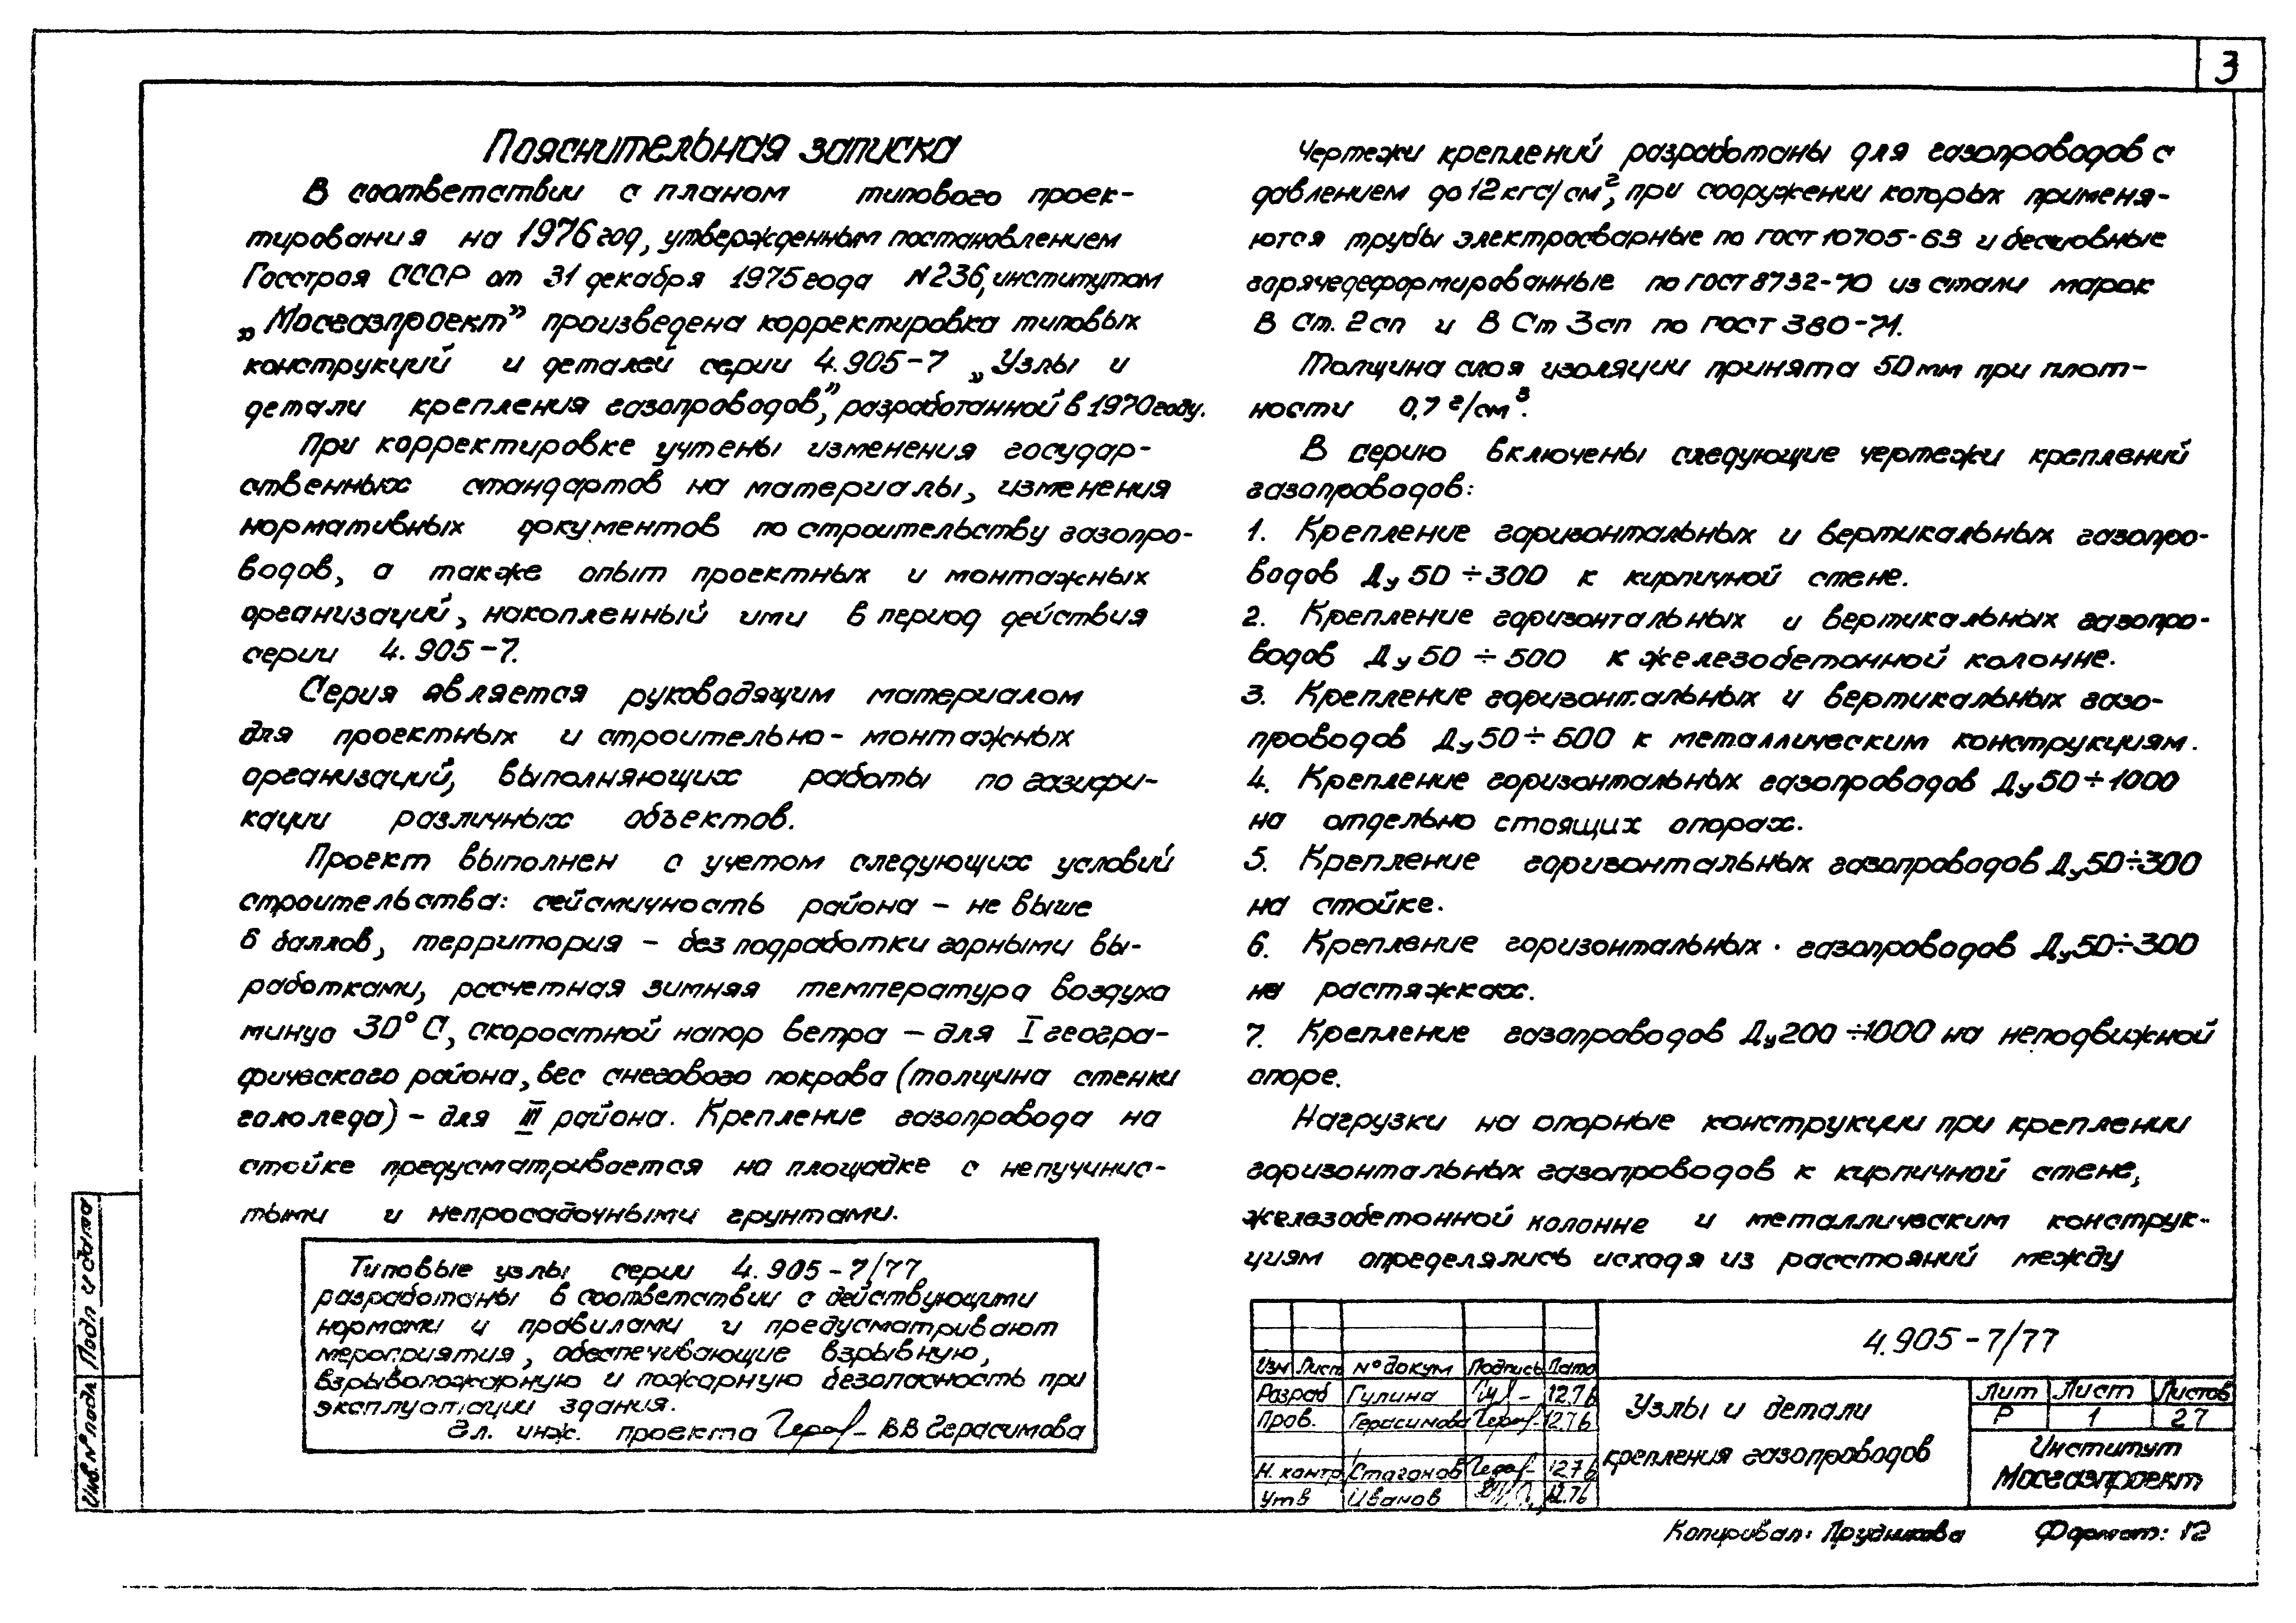 3
Пояснительная записка
В соответствии с планом типового проек-
тирования на 1976 год, утвержденным постановлением
Госстроя СССР от 31 декабря 1975 года N 236, институтом
„Мосгазпроект” произведена корректировка типовых
конструкций и деталей серии 4.905-7 „Узлы и
детали крепления газопроводов”, разработанной в 1970 году.
При корректировке учтены изменения государ-
ственных стандартов на материалы, изменения
нормативных документов по строительству газопро-
водов, а также опыт проектных и монтажных
организаций, накопленный ими в период действия
серии 4.905-7.
Серия является руководящим материалом
для проектных и строительно-монтажных
организаций, выполняющих работы по газифи-
кации различных объектов.
Проект выполнен с учетом следующих условий
строительства: сейсмичность района - не выше
6 баллов, территория - без подработки горными вы-
работками, расчетная зимняя температура воздуха
минус 30°С, скоростной напор ветра - для I геогра-
фического района, вес снегового покрова (толщина стенки
гололеда) - для III района. Крепление газопровода на
стойке предусматривается на площадке с непучинис-
тыми и непросадочными грунтами.
Типовые узлы серии 4.905-7/77
разработаны в соответствии с действующими
нормами и правилами и предусматривают
мероприятия, обеспечивающие взрывную,
взрывопожарную и пожарную безопасность при
эксплуатации здания.
Гл. инж. проекта В В Герасимова
Чертежи креплений разработаны для газопроводов с
давлением до 12 кгс/см², при сооружении которых применя-
ются трубы электросварные по ГОСТ 10705-63 и бесшовные
горячедеформированные по ГОСТ 8732-70 из стали марок
В Ст. 2сп и В Ст 3сп по ГОСТ 380-71.
Толщина слоя изоляции принята 50 мм при плот-
ности 0,7 г/см³.
В серию включены следующие чертежи креплений
газопроводов:
1. Крепление горизонтальных и вертикальных газопро-
водов Ду 50÷300 к кирпичной стене.
2. Крепление горизонтальных и вертикальных газопро-
водов Ду 50÷500 к железобетонной колонне.
3. Крепление горизонтальных и вертикальных газо-
проводов Ду 50÷500 к металлическим конструкциям.
4. Крепление горизонтальных газопроводов Ду 50÷1000
на отдельно стоящих опорах.
5. Крепление горизонтальных газопроводов Ду 50÷300
на стойке.
6. Крепление горизонтальных газопроводов Ду 50÷300
на растяжках.
7. Крепление газопроводов Ду 200÷1000 на неподвижной
опоре.
Нагрузки на опорные конструкции при креплении
горизонтальных газопроводов к кирпичной стене,
железобетонной колонне и металлическим конструк-
циям определялись исходя из расстояний между
Изм Лист № докум Подпись Дата
Разраб Гулина 12.76
Пров. Герасимова 12.76
Н. контр Стагонов 12.76
Утв Иванов 12.76
4.905-7/77
Узлы и детали
крепления газопроводов
Лит Лист Листов
Р 1 27
Институт
Мосгазпроект
Копировал: Прудникова Формат: 12
Инв. № подл Подп и дата